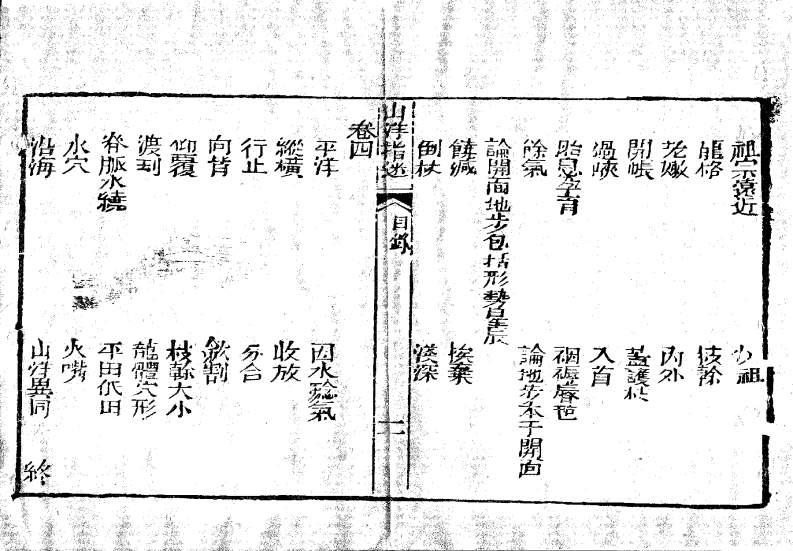 祖宗遠近　少祖
龍格　枝幹
老嫩　內外
開帳　蓋護枝
過峽　入首
胎息孕育　裀褥唇毡
餘氣　論地步本于開面
論開面地步包括形勢星辰
饒減　挨棄
倒杖　淺深
山洋指迷　目錄　二
卷四
平洋　因水驗氣
縱橫　收放
行止　分合
向背　歛割
仰覆　枝幹大小
渡到　龍體穴形
脊脈水繞　平田低田
水穴　火嘴
沿海　山洋異同　終